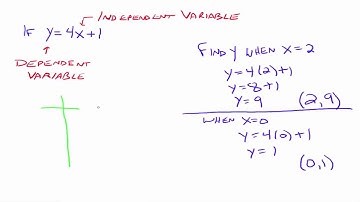 INDEPENDENT VARIABLE
IF y=4x+1
DEPENDENT
VARIABLE
FIND y WHEN x=2
y=4(2)+1
y=8+1
y=9 (2,9)
WHEN x=0
y=4(0)+1
y=1
(0,1)